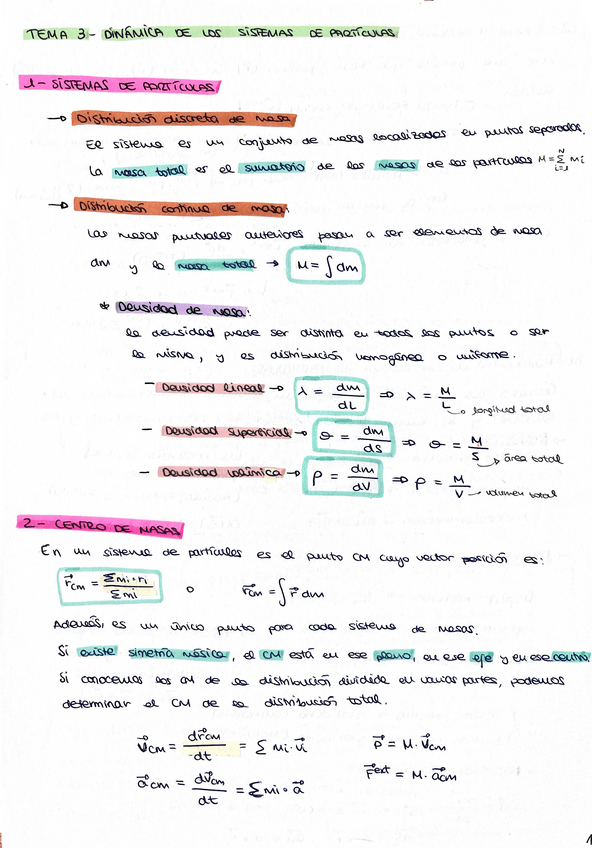 TEMA 3 - DINÁMICA DE LOS SISTEMAS DE PARTÍCULAS
1 - SISTEMAS DE PARTÍCULAS
→ Distribución discreta de masa
El sistema es un conjunto de masas localizadas en puntos separados.
La masa total es el sumatorio de las masas de las partículas M = Σ_{i=1}^{N} mi
→ Distribución continua de masa:
Las masas puntuales anteriores pasan a ser elementos de masa
dm y la masa total → M = ∫ dm
* Densidad de masa:
la densidad puede ser distinta en todos los puntos o ser
la misma, y es distribución homogénea o uniforme.
- Densidad lineal → λ = dm/dL ⇒ λ = M/L → longitud total
- Densidad superficial → σ = dm/dS ⇒ σ = M/S → área total
- Densidad volúmica → ρ = dm/dV ⇒ ρ = M/V → volumen total
2 - CENTRO DE MASAS
En un sistema de partículas es el punto CM cuyo vector posición es:
r⃗cm = Σmi·ri / Σmi o r⃗cm = ∫ r⃗ dm
Además, es un único punto para cada sistema de masas.
Si existe simetría másica, el CM está en ese plano, en ese eje y en ese centro.
Si conocemos los CM de la distribución dividida en varias partes, podemos
determinar el CM de la distribución total.
v⃗cm = dr⃗cm/dt = Σ mi·v⃗i p⃗ = M·v⃗cm
a⃗cm = dv⃗cm/dt = Σ mi·a⃗ F⃗ext = M·a⃗cm
1